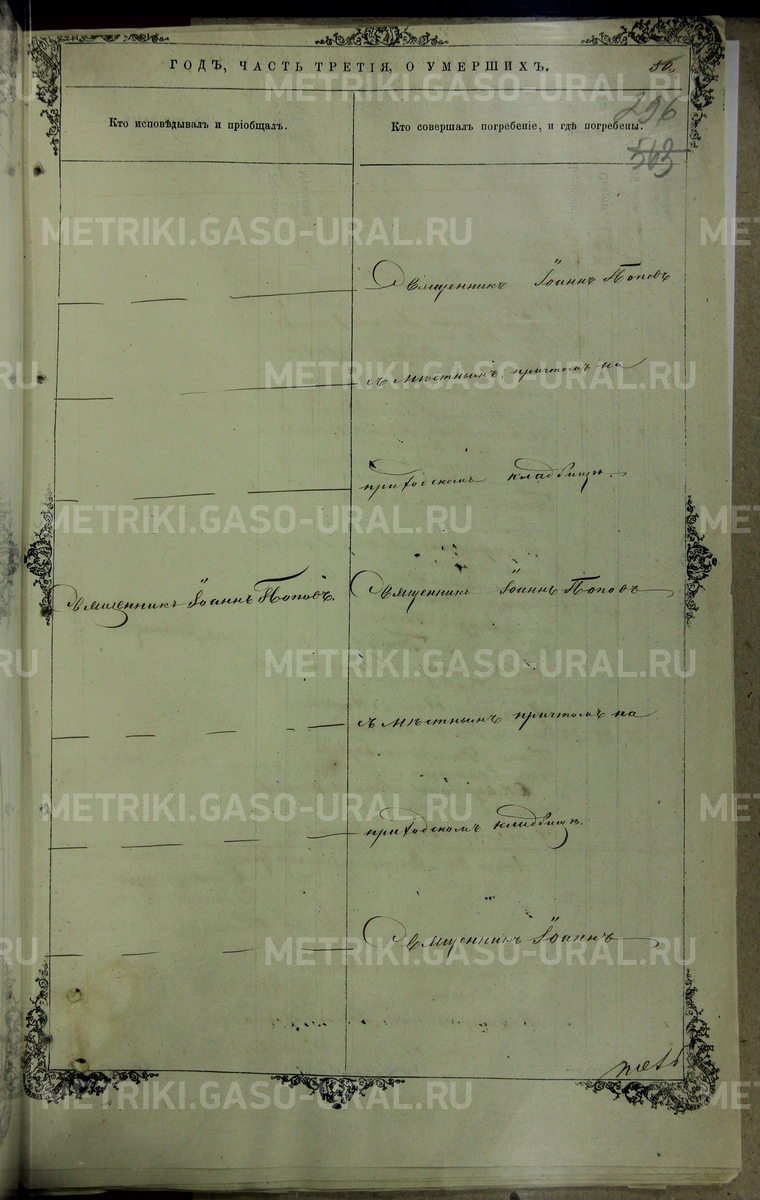 ГОДЪ, ЧАСТЬ ТРЕТІЯ, О УМЕРШИХЪ. 56.
296
Кто исповѣдывалъ и пріобщалъ. Кто совершалъ погребеніе, и гдѣ погребены.
563
Священникъ Іоаннъ Поповъ
съ мѣстнымъ причтомъ на
приходскомъ кладбищѣ.
Священникъ Іоаннъ Поповъ. Священникъ Іоаннъ Поповъ
съ мѣстнымъ причтомъ на
приходскомъ кладбищѣ.
Священникъ Іоаннъ
METRIKI.GASO-URAL.RU